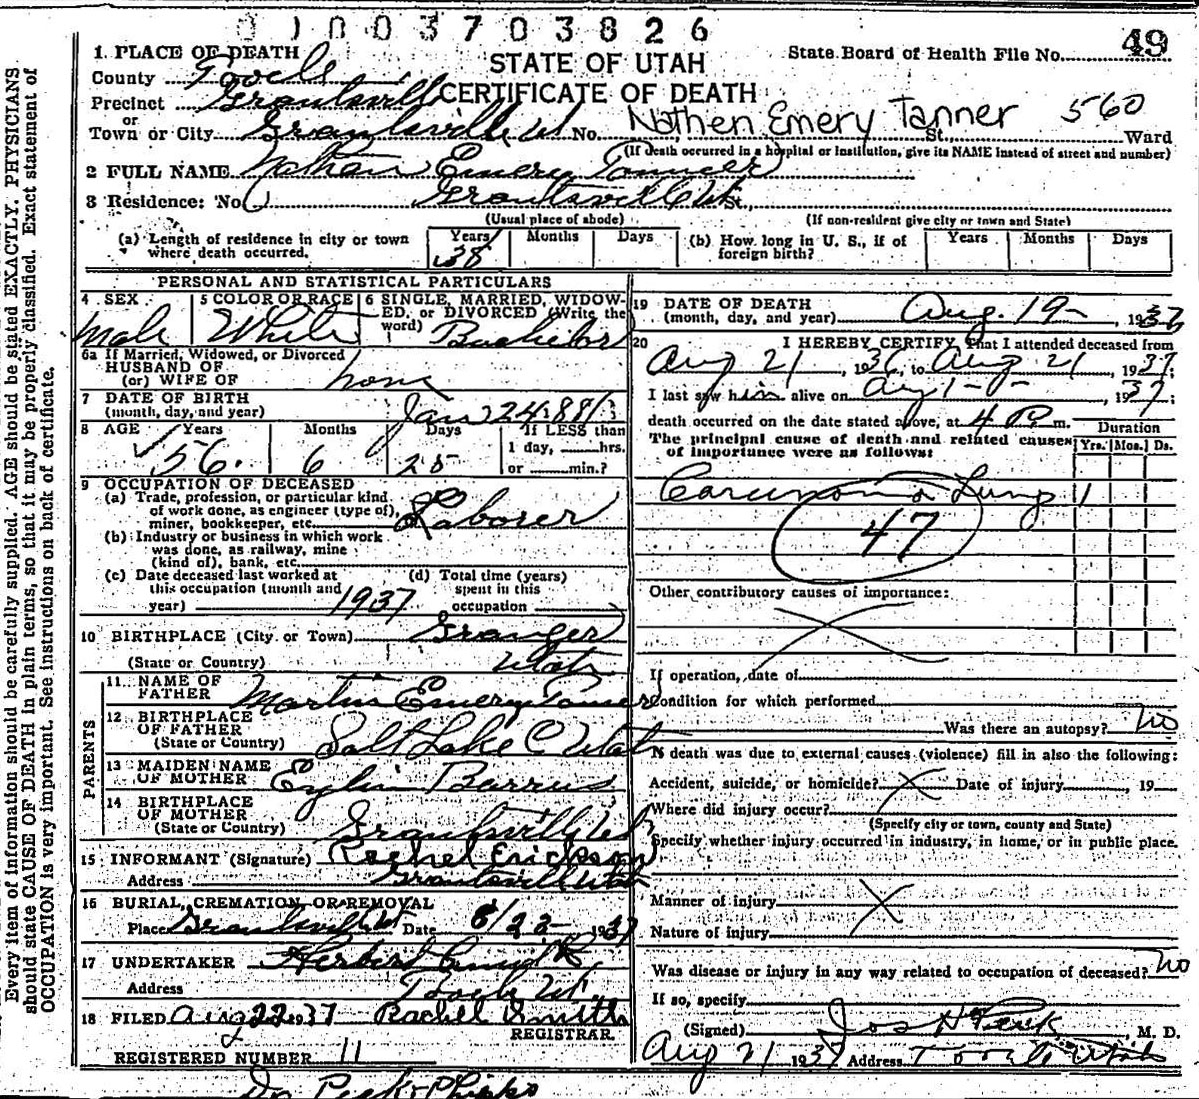 0 1 0 0 3 7 0 3 8 2 6
49
1. PLACE OF DEATH
STATE OF UTAH
State Board of Health File No.
County Tooele
CERTIFICATE OF DEATH
Precinct Grantsville
or
Town or City Grantsville Ut No. Nathen Emery Tanner 560 St. Ward
(If death occurred in a hospital or institution, give its NAME instead of street and number)
2 FULL NAME Nathan Emery Tanner
3 Residence: No. Grantsville Ut St.,
(Usual place of abode) (If non-resident give city or town and State)
(a) Length of residence in city or town where death occurred. Years 38 Months Days
(b) How long in U. S., if of foreign birth? Years Months Days
PERSONAL AND STATISTICAL PARTICULARS
4 SEX Male
5 COLOR OR RACE White
6 SINGLE, MARRIED, WIDOWED, or DIVORCED (Write the word) Bachelor
6a If Married, Widowed, or Divorced
HUSBAND OF
(or) WIFE OF none
7 DATE OF BIRTH
(month, day, and year) Jan 24 1881
8 AGE Years 56. Months 6 Days 25 If LESS than 1 day, hrs. or min.?
9 OCCUPATION OF DECEASED
(a) Trade, profession, or particular kind
of work done, as engineer (type of),
miner, bookkeeper, etc. Laborer
(b) Industry or business in which work
was done, as railway, mine
(kind of), bank, etc.
(c) Date deceased last worked at
this occupation (month and
year) 1937
(d) Total time (years)
spent in this
occupation
10 BIRTHPLACE (City or Town) Granger
(State or Country) Utah
PARENTS
11 NAME OF
FATHER Martin Emery Tanner
12 BIRTHPLACE
OF FATHER
(State or Country) Salt Lake C Utah
13 MAIDEN NAME
OF MOTHER Barrus
14 BIRTHPLACE
OF MOTHER
(State or Country) Grantsville Ut
15 INFORMANT (Signature) Rachel Erickson
Address Grantsville Utah
16 BURIAL, CREMATION, OR REMOVAL
Place Grantsville Ut Date 8/22 1937
17 UNDERTAKER Herbert
Address Tooele Ut.
18 FILED Aug 22 1937 Rachel Smith
REGISTRAR.
REGISTERED NUMBER 11
19 DATE OF DEATH
(month, day, and year) Aug. 19- , 1937
20 I HEREBY CERTIFY, That I attended deceased from
Aug 21 , 1936, to Aug 21 , 1937;
I last saw him alive on Aug 1- , 1937;
death occurred on the date stated above, at 4 P. m.
Duration
The principal cause of death and related causes
of importance were as follows: Yrs. Mos. Ds.
Carcinoma Lung 1
47
Other contributory causes of importance:
If operation, date of
Condition for which performed
Was there an autopsy? no
If death was due to external causes (violence) fill in also the following:
Accident, suicide, or homicide? Date of injury , 19
Where did injury occur?
(Specify city or town, county and State)
Specify whether injury occurred in industry, in home, or in public place.
Manner of injury
Nature of injury
Was disease or injury in any way related to occupation of deceased? no
If so, specify
(Signed) Jos H Peck , M. D.
Aug 21 1937 Address Tooele Utah
Every item of information should be carefully supplied. AGE should be stated EXACTLY. PHYSICIANS
should state CAUSE OF DEATH in plain terms, so that it may be properly classified. Exact statement of
OCCUPATION is very important. See instructions on back of certificate.